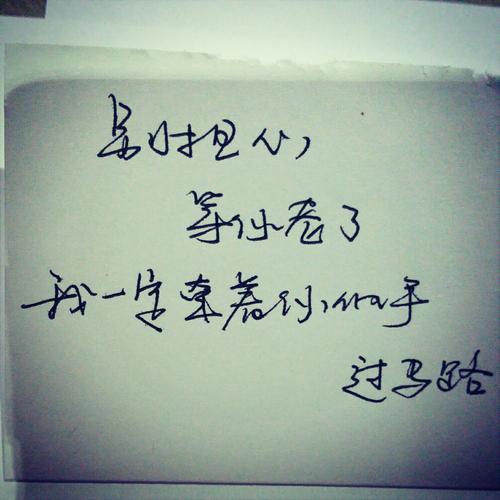 别担心,
等你老了
我一定牵着你的手
过马路